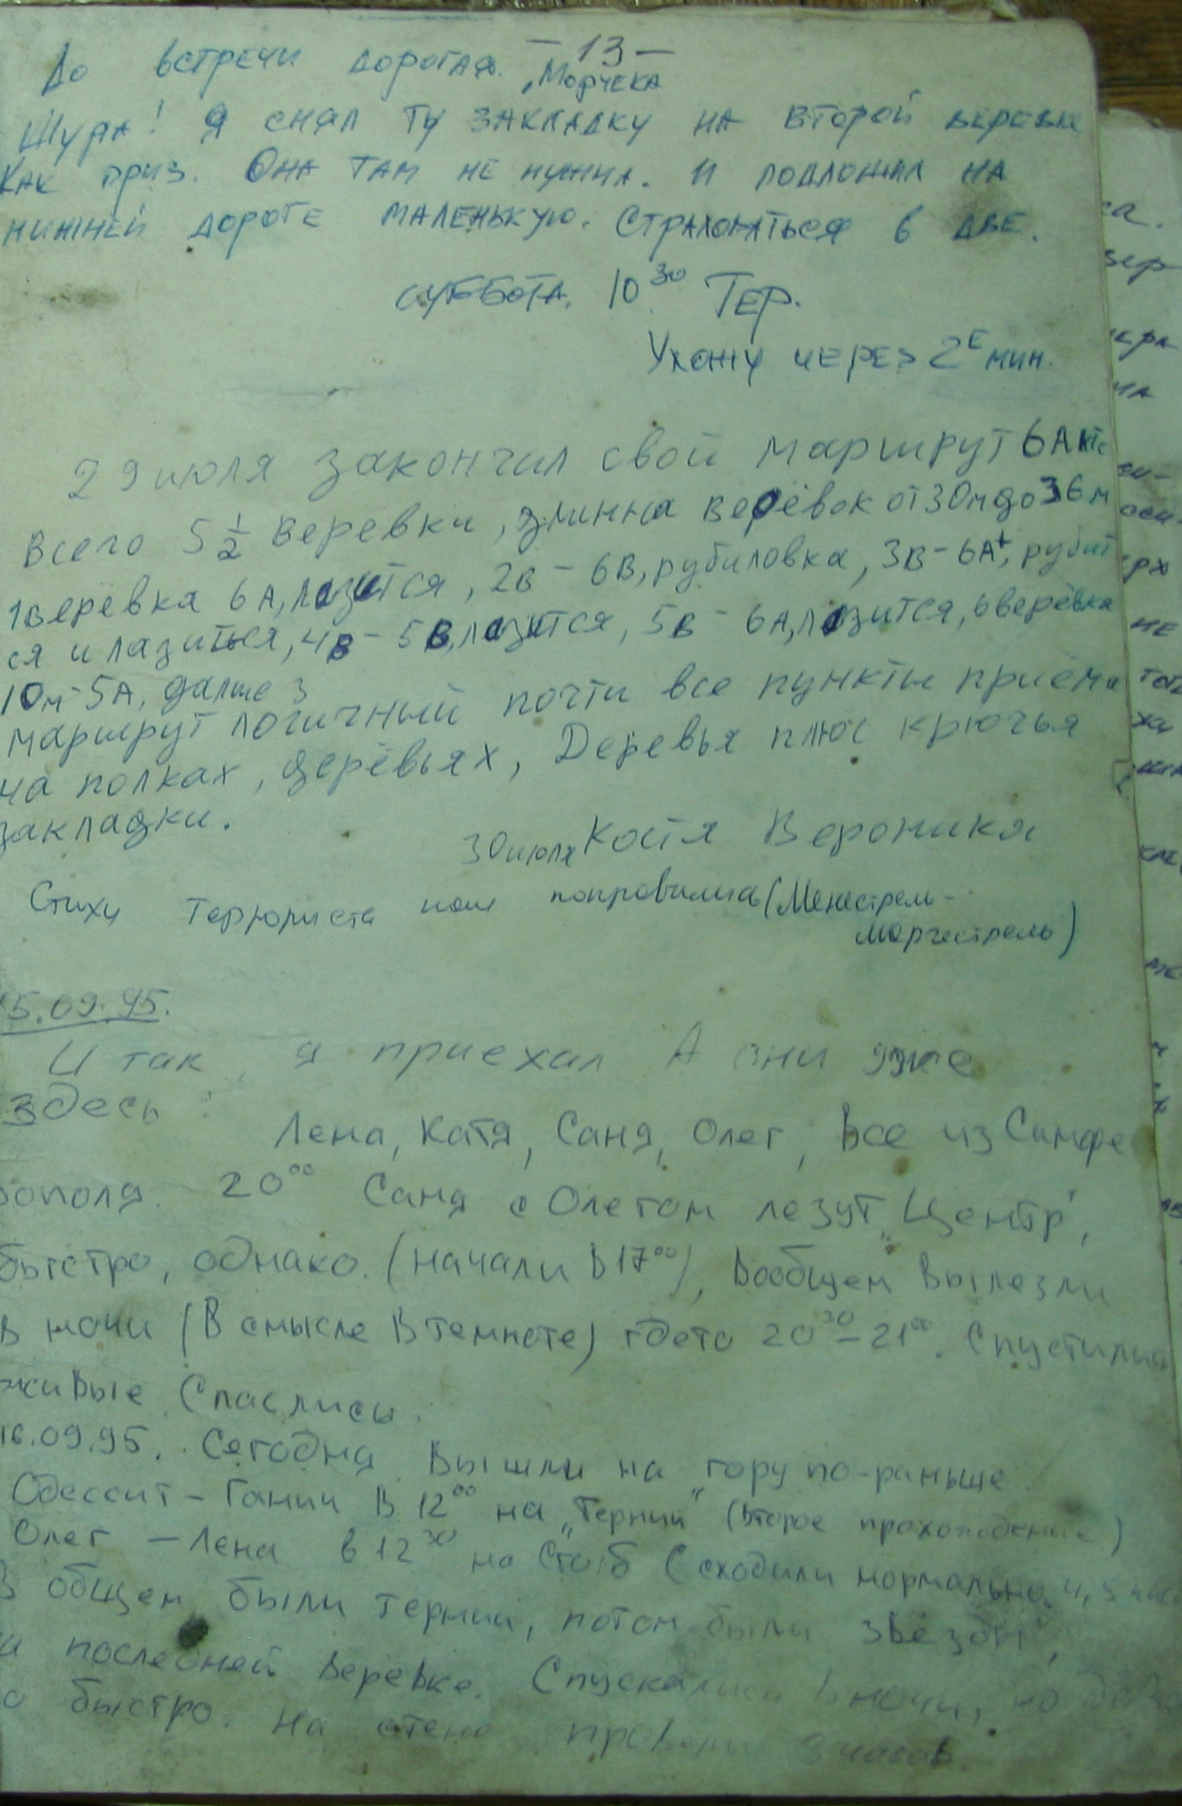 — 13 —
До встречи дорогая „Морчека
Шура! Я снял ту закладку на второй веревке
Как приз. Она там не нужна. И подложил на
нижней дороге маленькую. Страховаться в две.
суббота. 10 30 Тер.
Ухожу через 2Е мин.
29 июля закончил свой маршрут 6А
Всего 5 1/2 веревки, длинна верёвок от 30м до 36м
1 верёвка 6А, лазится, 2в – 6В, рубиловка, 3в – 6А+, рубит
ся и лазиться, 4в – 5В, лазится, 5в – 6А, лазится, 6 верёвка
10м – 5А, дальше 3
маршрут логичный почти все пункты приёма
на полках, деревьях, Деревья плюс крючья
закладки.
30 июля Костя Вероника
Стихи Террориста нам понравились (Менестрель-
морчестрель)
5.09.95.
И так, я приехал А они уже
здесь:
Лена, Катя, Саня, Олег, Все из Симфе
рополя. 20 00 Саня с Олегом лезут „Центр",
быстро, однако. (начали в 17 00), Вообщем вылезли
в ночи (В смысле В темноте) гдето 20 30 – 21 00. Спустились
живые Спаслись.
16.09.95. Сегодня вышли на гору по-раньше
Одессит – Ганин В 12 00 на „Тернии" (второе прохождение)
Олег – Лена в 12 30 на Столб (сходили нормально 4,5
В общем были тернии, потом были звёзды",
и последней верёвке. Спускались в ночи, но
о быстро. На стене провели 8 часов